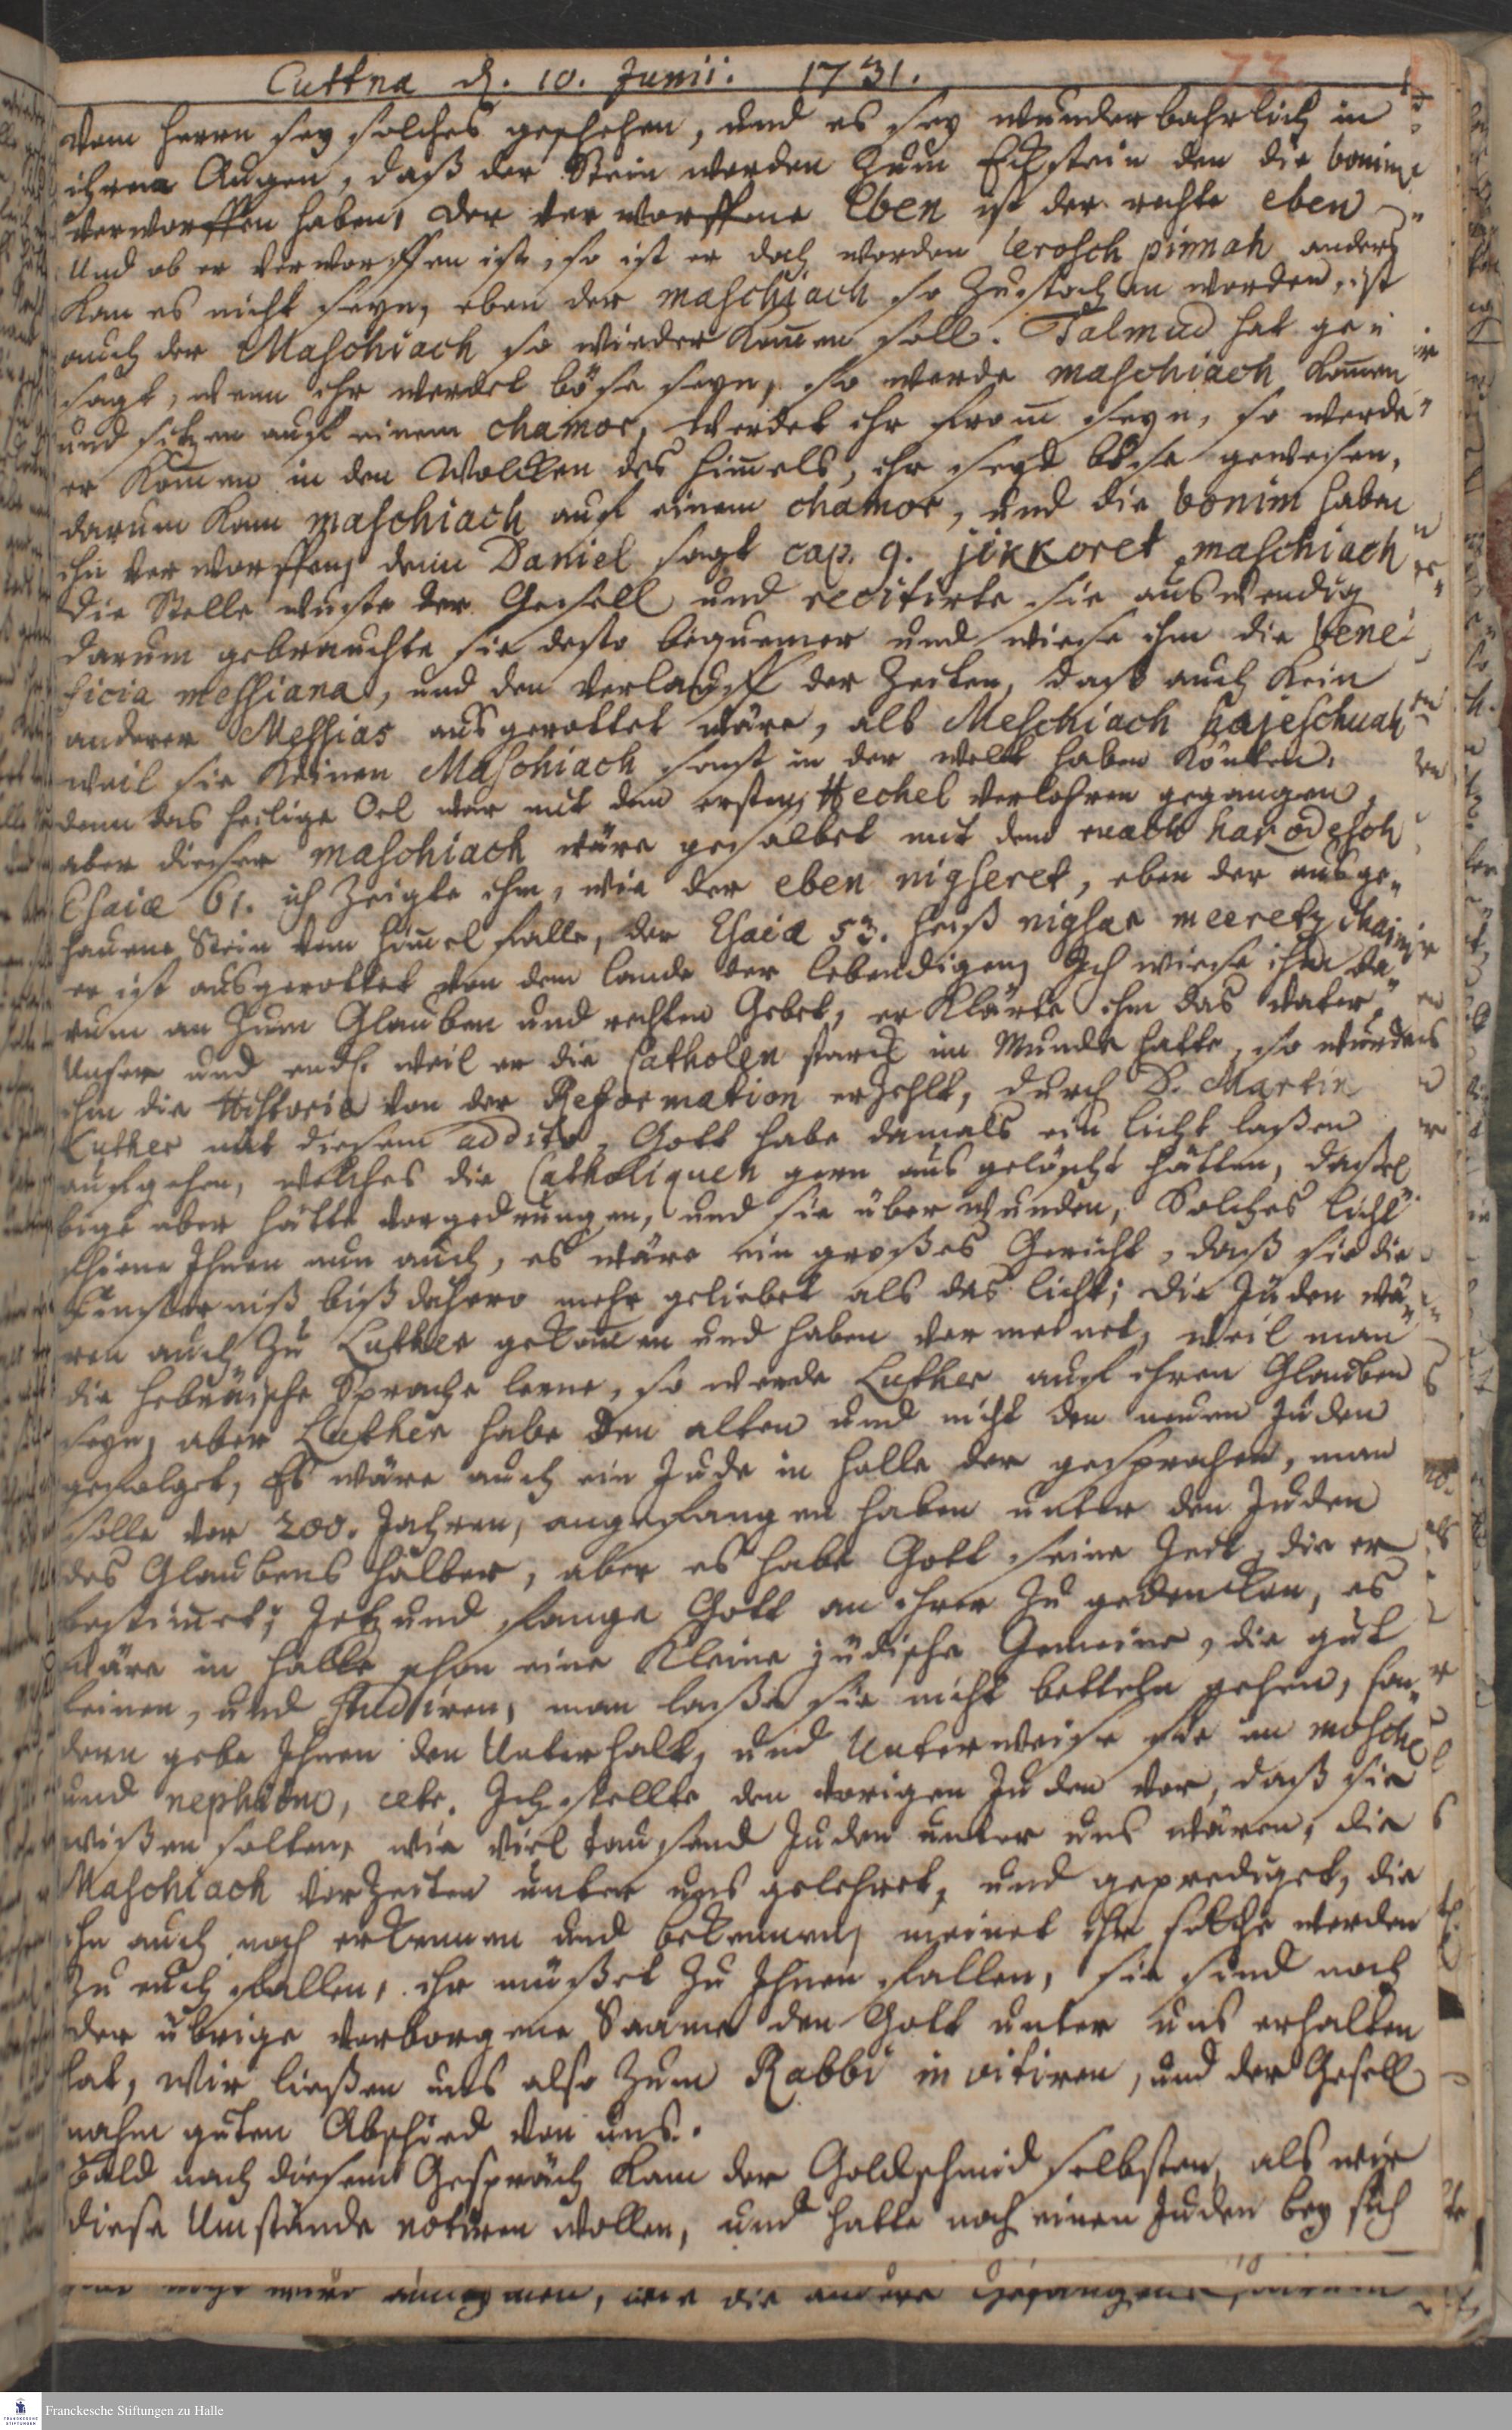 Cuttna d. 10. Junii. 1731.
73
vom Herrn sey solches geschehen, und es sey wunderbahrlich in
ihren Augen, daß der Stein worden zum Eckstein den die bonim
verworffen haben, der verworffene Eben ist der rechte eben
Und ob er verworffen ist, so ist er doch worden lerosch pinnah anders
kan es nicht seyn, eben der maschiach so zustochen worden, ist
auch der Maschiach so wieder kom̄en soll. Talmud hat ge-
sagt, wenn ihr werdet böse seyn, so werde maschiach kom̄en
und sitzen auf einem chamor, werdet ihr from̄ seyn, so werde
er kom̄en in den Wolcken des Him̄els, ihr seyd böse gewesen,
darum kam maschiach auf einem chamor, und die bonim haben
ihn verworffen, den̄ Daniel sagt cap. 9. jikkoret maschiach
die Stelle wuste der Gesell und recitirte sie auswendig
darum gebrauchte sie desto bequemer und wiese ihm die bene-
ficia messiana, und den Verlauff der Zeiten, daß auch kein
anderer Messias ausgerottet wäre, als Meschiach hajeschuah
weil sie keinen Maschiach sonst in der welt haben könten,
denn das heilige Oel war mit dem ersten Hechel verlohren gegangen,
aber dieser maschiach wäre gesalbet mit dem ruach hakodesch
Esaiæ 61. ich zeigte ihm, wie der eben nigseret, eben der ausge-
hauene Stein vom Him̄el falle, der Esaiæ 53. heiß nigsar meeretz chajim
er ist ausgerottet von dem Lande der lebendigen, Ich wiese ihn da-
rum an zum Glauben und rechten Gebet, erklärte ihm das Vater
Unser und endl. weil er die Catholen starck im Munde hatte, so wurde
ihm die Historie von der Reformation erzehlt, durch D. Martin
Luther mit diesem addito, Gott habe damals ein Licht laßen
aufgehen, welches die Catholiquen gern ausgelöscht hätten, daßel-
bige aber hätte vorgedrungen, und sie überwunden, Solches Licht
schiene Ihnen nun auch, es wäre ein großes Gericht, daß sie die
Finsterniß bißdahero mehr geliebet als das Licht; die Juden wä-
ren auch zu Luther gekom̄en und haben vermeinet, weil man
die hebräische Sprache lerne, so werde Luther auf ihren Glauben
seyn, aber Luther habe den alten und nicht den neuen Juden
gefolget, Es wäre auch ein Jude in Halle der gesprochen, man
solle vor 200. Jahren, angefangen haben unter den Juden
des Glaubens halber, aber es habe Gott seine Zeit, die er
bestim̄et; Jetzund fange Gott an ihrer zu gedencken, es
wäre in Halle schon eine kleine jüdische Gemeine, die gut
leinen, und studiren, man laße sie nicht betteln gehen, son-
dern gebe Ihnen den Unterhalt, und Unterweise sie im
und cetr. Ich stellte den vorigen Juden vor, daß sie
wißen solten, wie viel tausend Juden unter uns wären, die
Maschiach vorzeiten unter uns gelehret, und geprediget, die
ihn auch noch erkennen und bekennen, meinet ihr solche werden
zu euch fallen, ihr müßet zu Ihnen fallen, sie sind noch
der übrige verborgene Saame den Gott unter uns erhalten
hat, Wir ließen uns also zum Rabbi invitiren, und der Gesell
nahm guten Abschied von uns.
Bald nach diesem Gespräch kam der Goldschmid selbsten, als wir
diese Umstände notiren wollen, und hatte noch einen Juden bey sich
die andere
Franckesche Stiftungen zu Halle